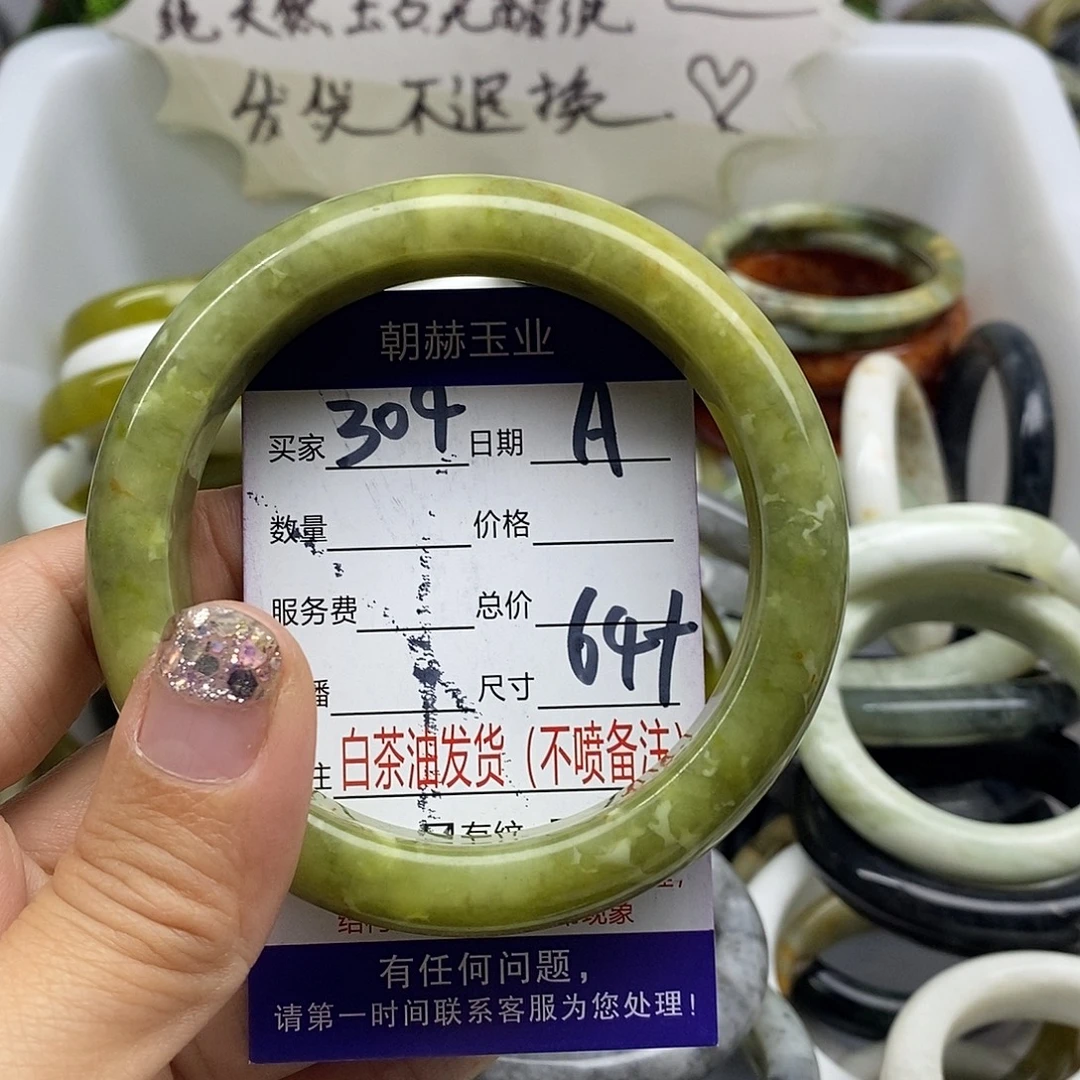 纯天然玉石无酸洗
发货不退换
朝赫玉业
买家 304 日期 A
数量 价格
服务费 总价
播 尺寸 64+
注 白茶油发货（不喷备注）
有纹
现象
有任何问题，
请第一时间联系客服为您处理！